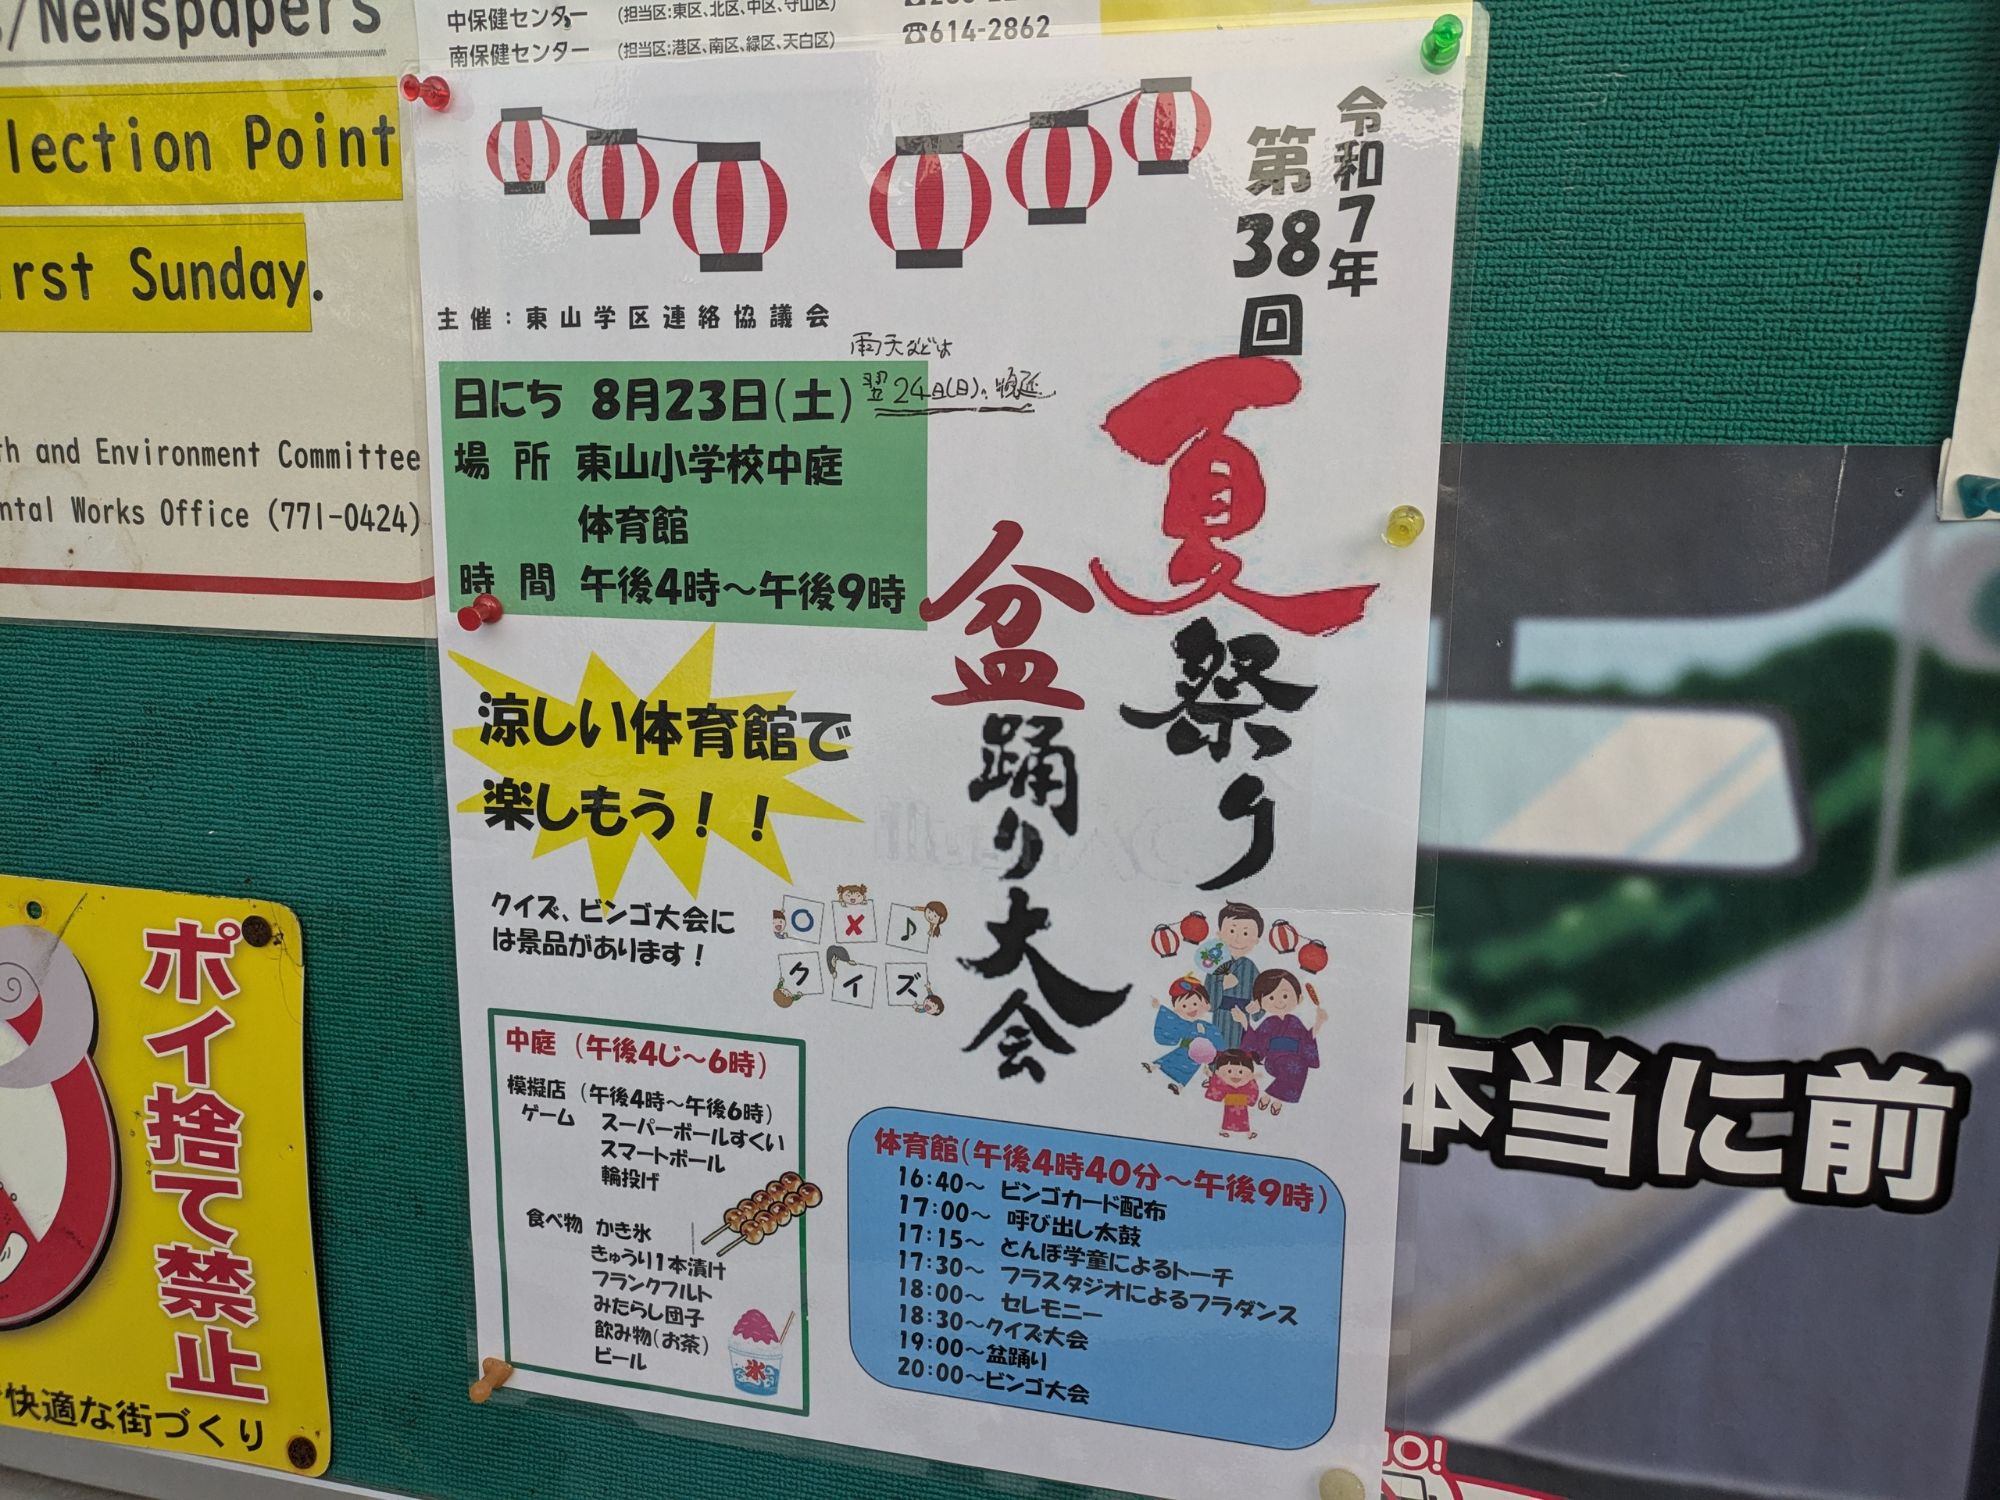 /Newspapers
lection Point
irst Sunday.
th and Environment Committee
ntal Works Office (771-0424)
中保健センター (担当区:東区、北区、中区、守山区)
南保健センター (担当区:港区、南区、緑区、天白区) ☎614-2862
令和7年
第38回
夏祭り
盆踊り大会
主催：東山学区連絡協議会
雨天などは
翌24日(日)に順延
日にち 8月23日(土)
場 所 東山小学校中庭
体育館
時 間 午後4時～午後9時
涼しい体育館で
楽しもう！！
クイズ、ビンゴ大会に
は景品があります！
○ × ♪
クイズ
中庭 (午後4じ～6時)
模擬店 (午後4時～午後6時)
ゲーム スーパーボールすくい
スマートボール
輪投げ
食べ物 かき氷
きゅうり1本漬け
フランクフルト
みたらし団子
飲み物(お茶)
ビール
氷
体育館(午後4時40分～午後9時)
16:40～ ビンゴカード配布
17:00～ 呼び出し太鼓
17:15～ とんぼ学童によるトーチ
17:30～ フラスタジオによるフラダンス
18:00～ セレモニー
18:30～クイズ大会
19:00～盆踊り
20:00～ビンゴ大会
ポイ捨て禁止
快適な街づくり
本当に前
NO!